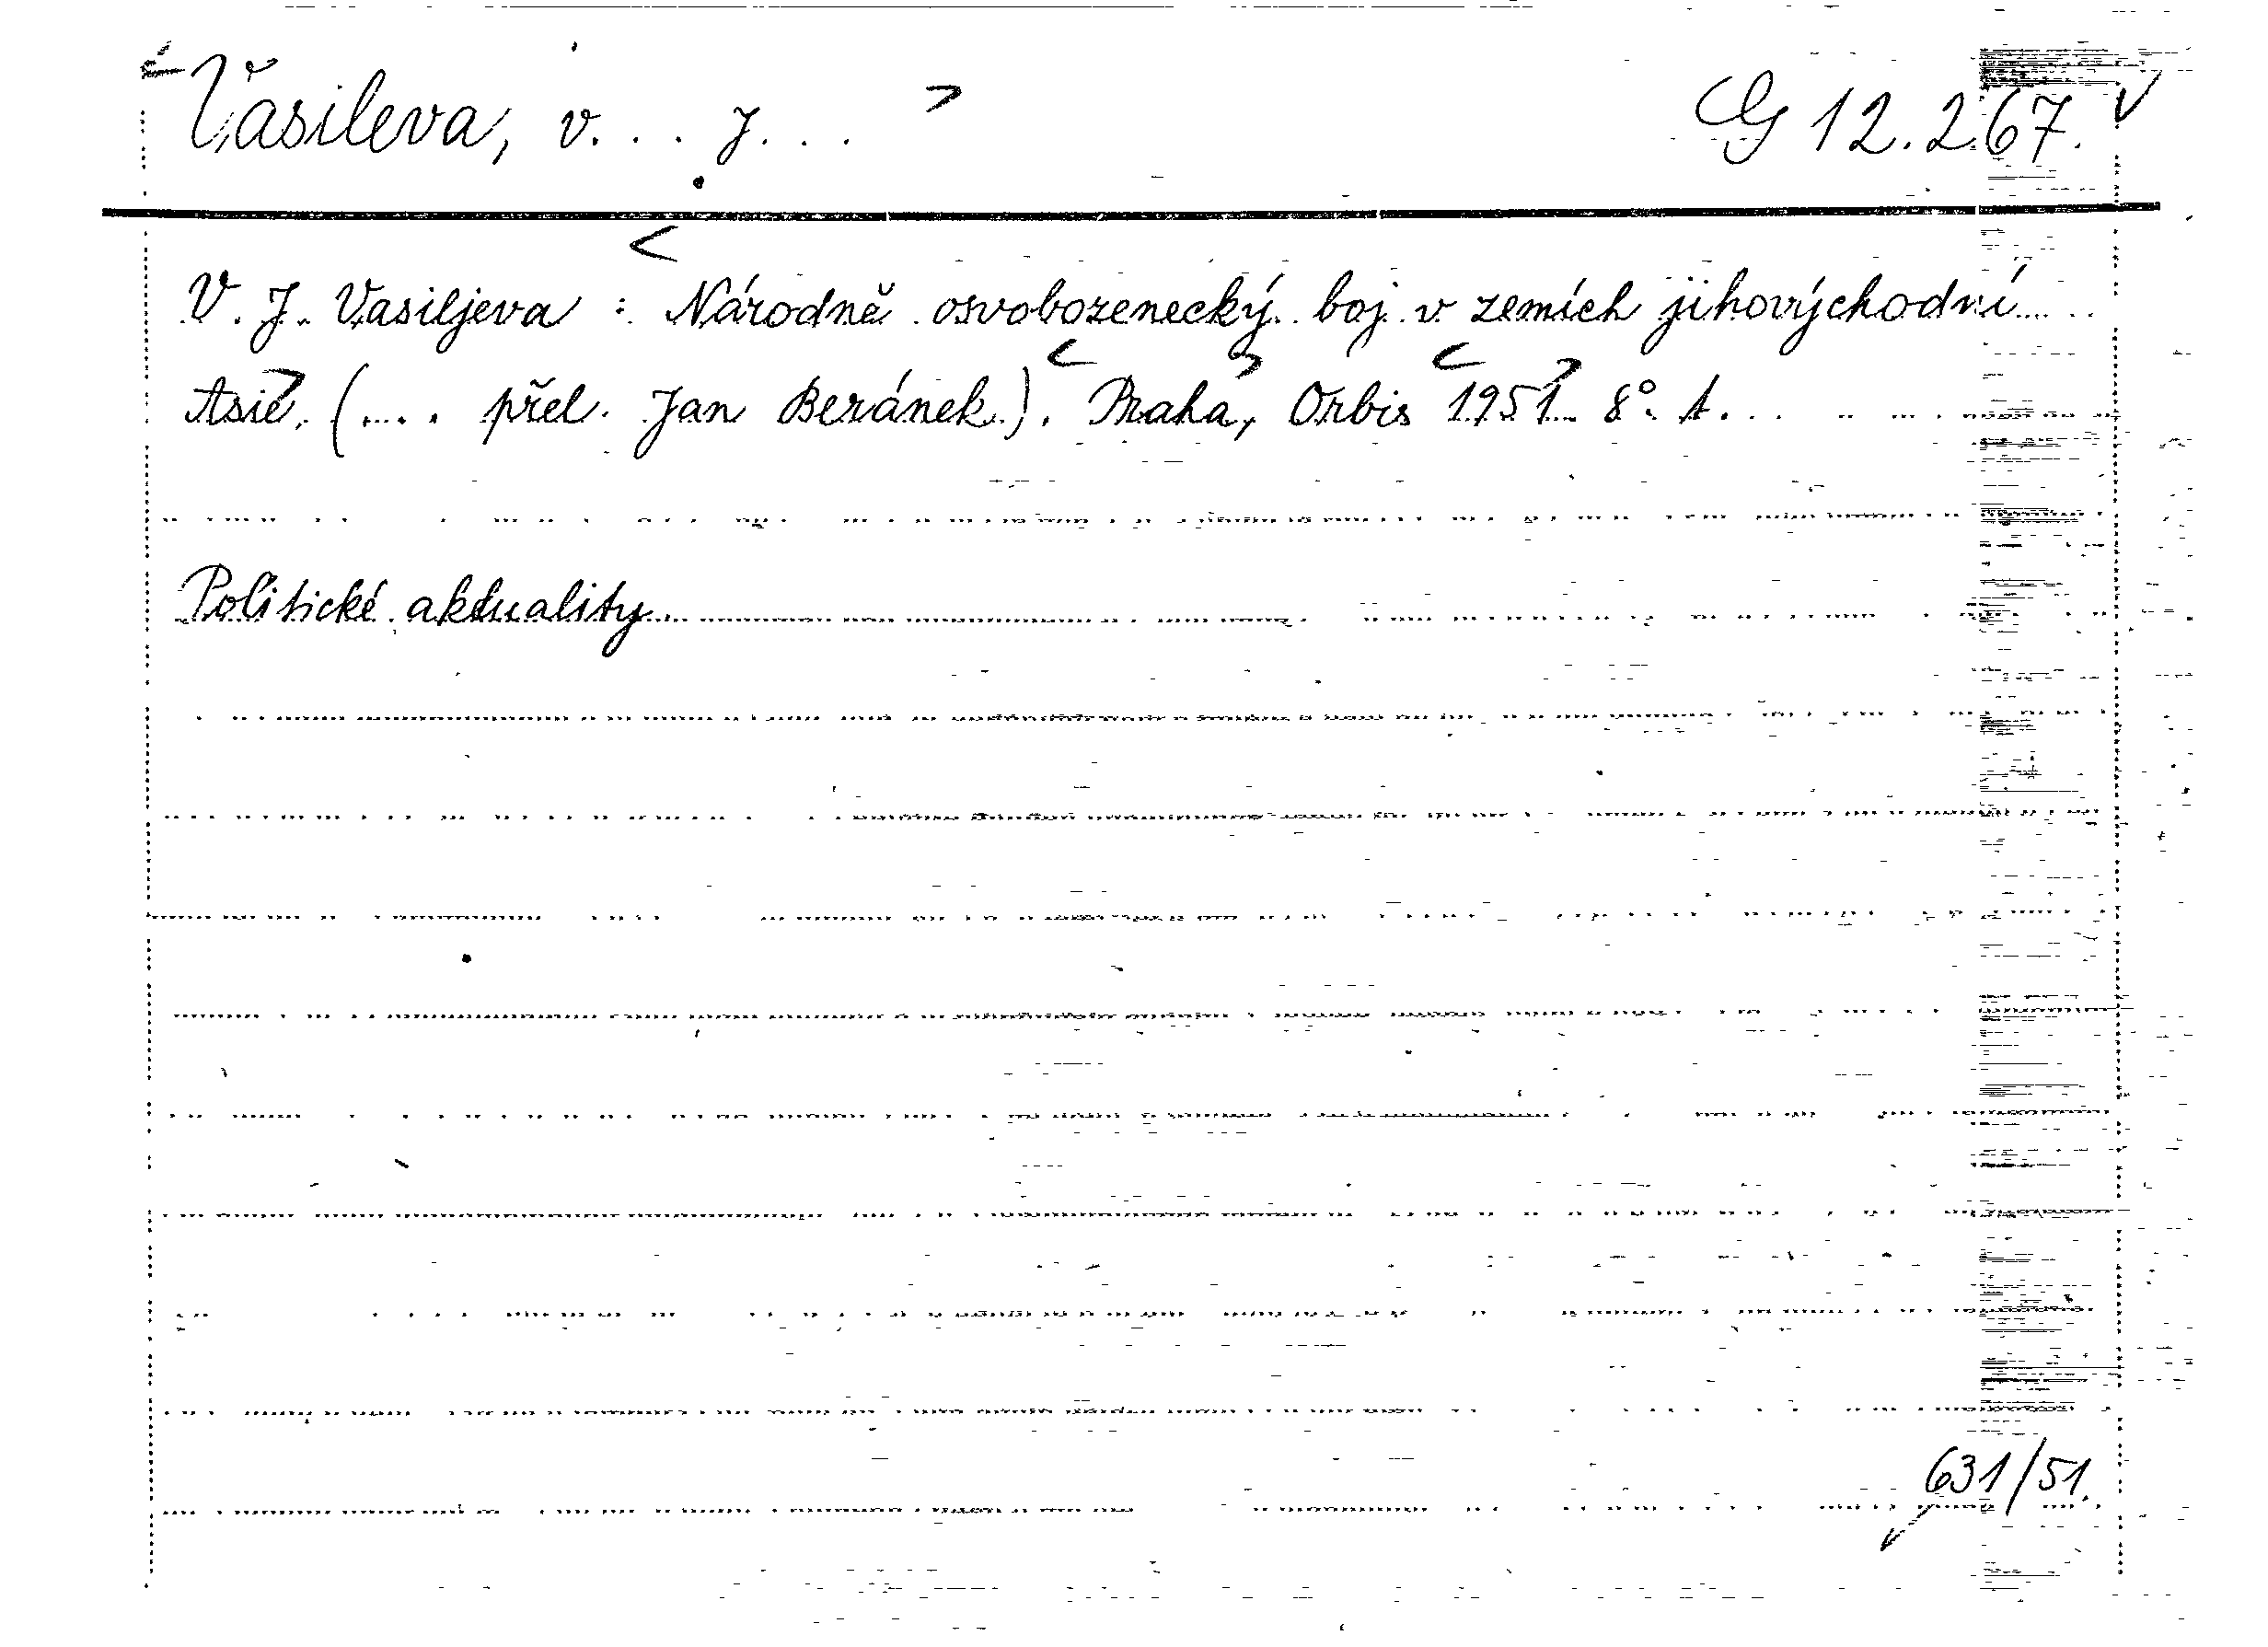 Vasileva, V... J... G 12.267.
V. J. Vasiljeva : Národně osvobozenecký boj v zemích jihovýchodní
Asie. (... přel. Jan Beránek). Praha, Orbis 1951. 8°. 1.
Politické aktuality
631/51.